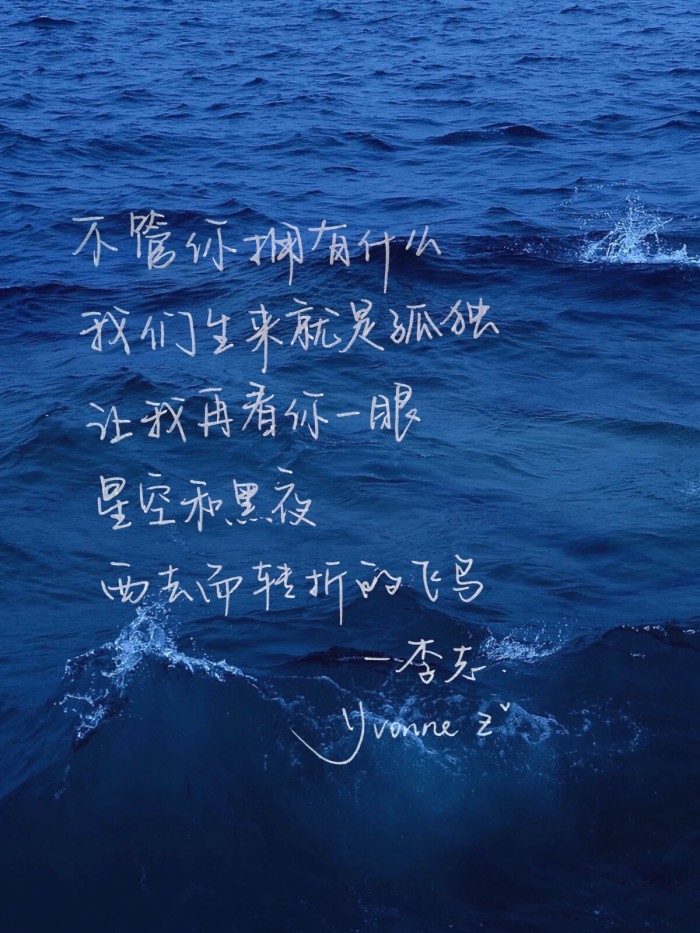 不管你拥有什么
我们生来就是孤独
让我再看你一眼
星空和黑夜
西去而转折的飞鸟
—李志.
Yvonne Z